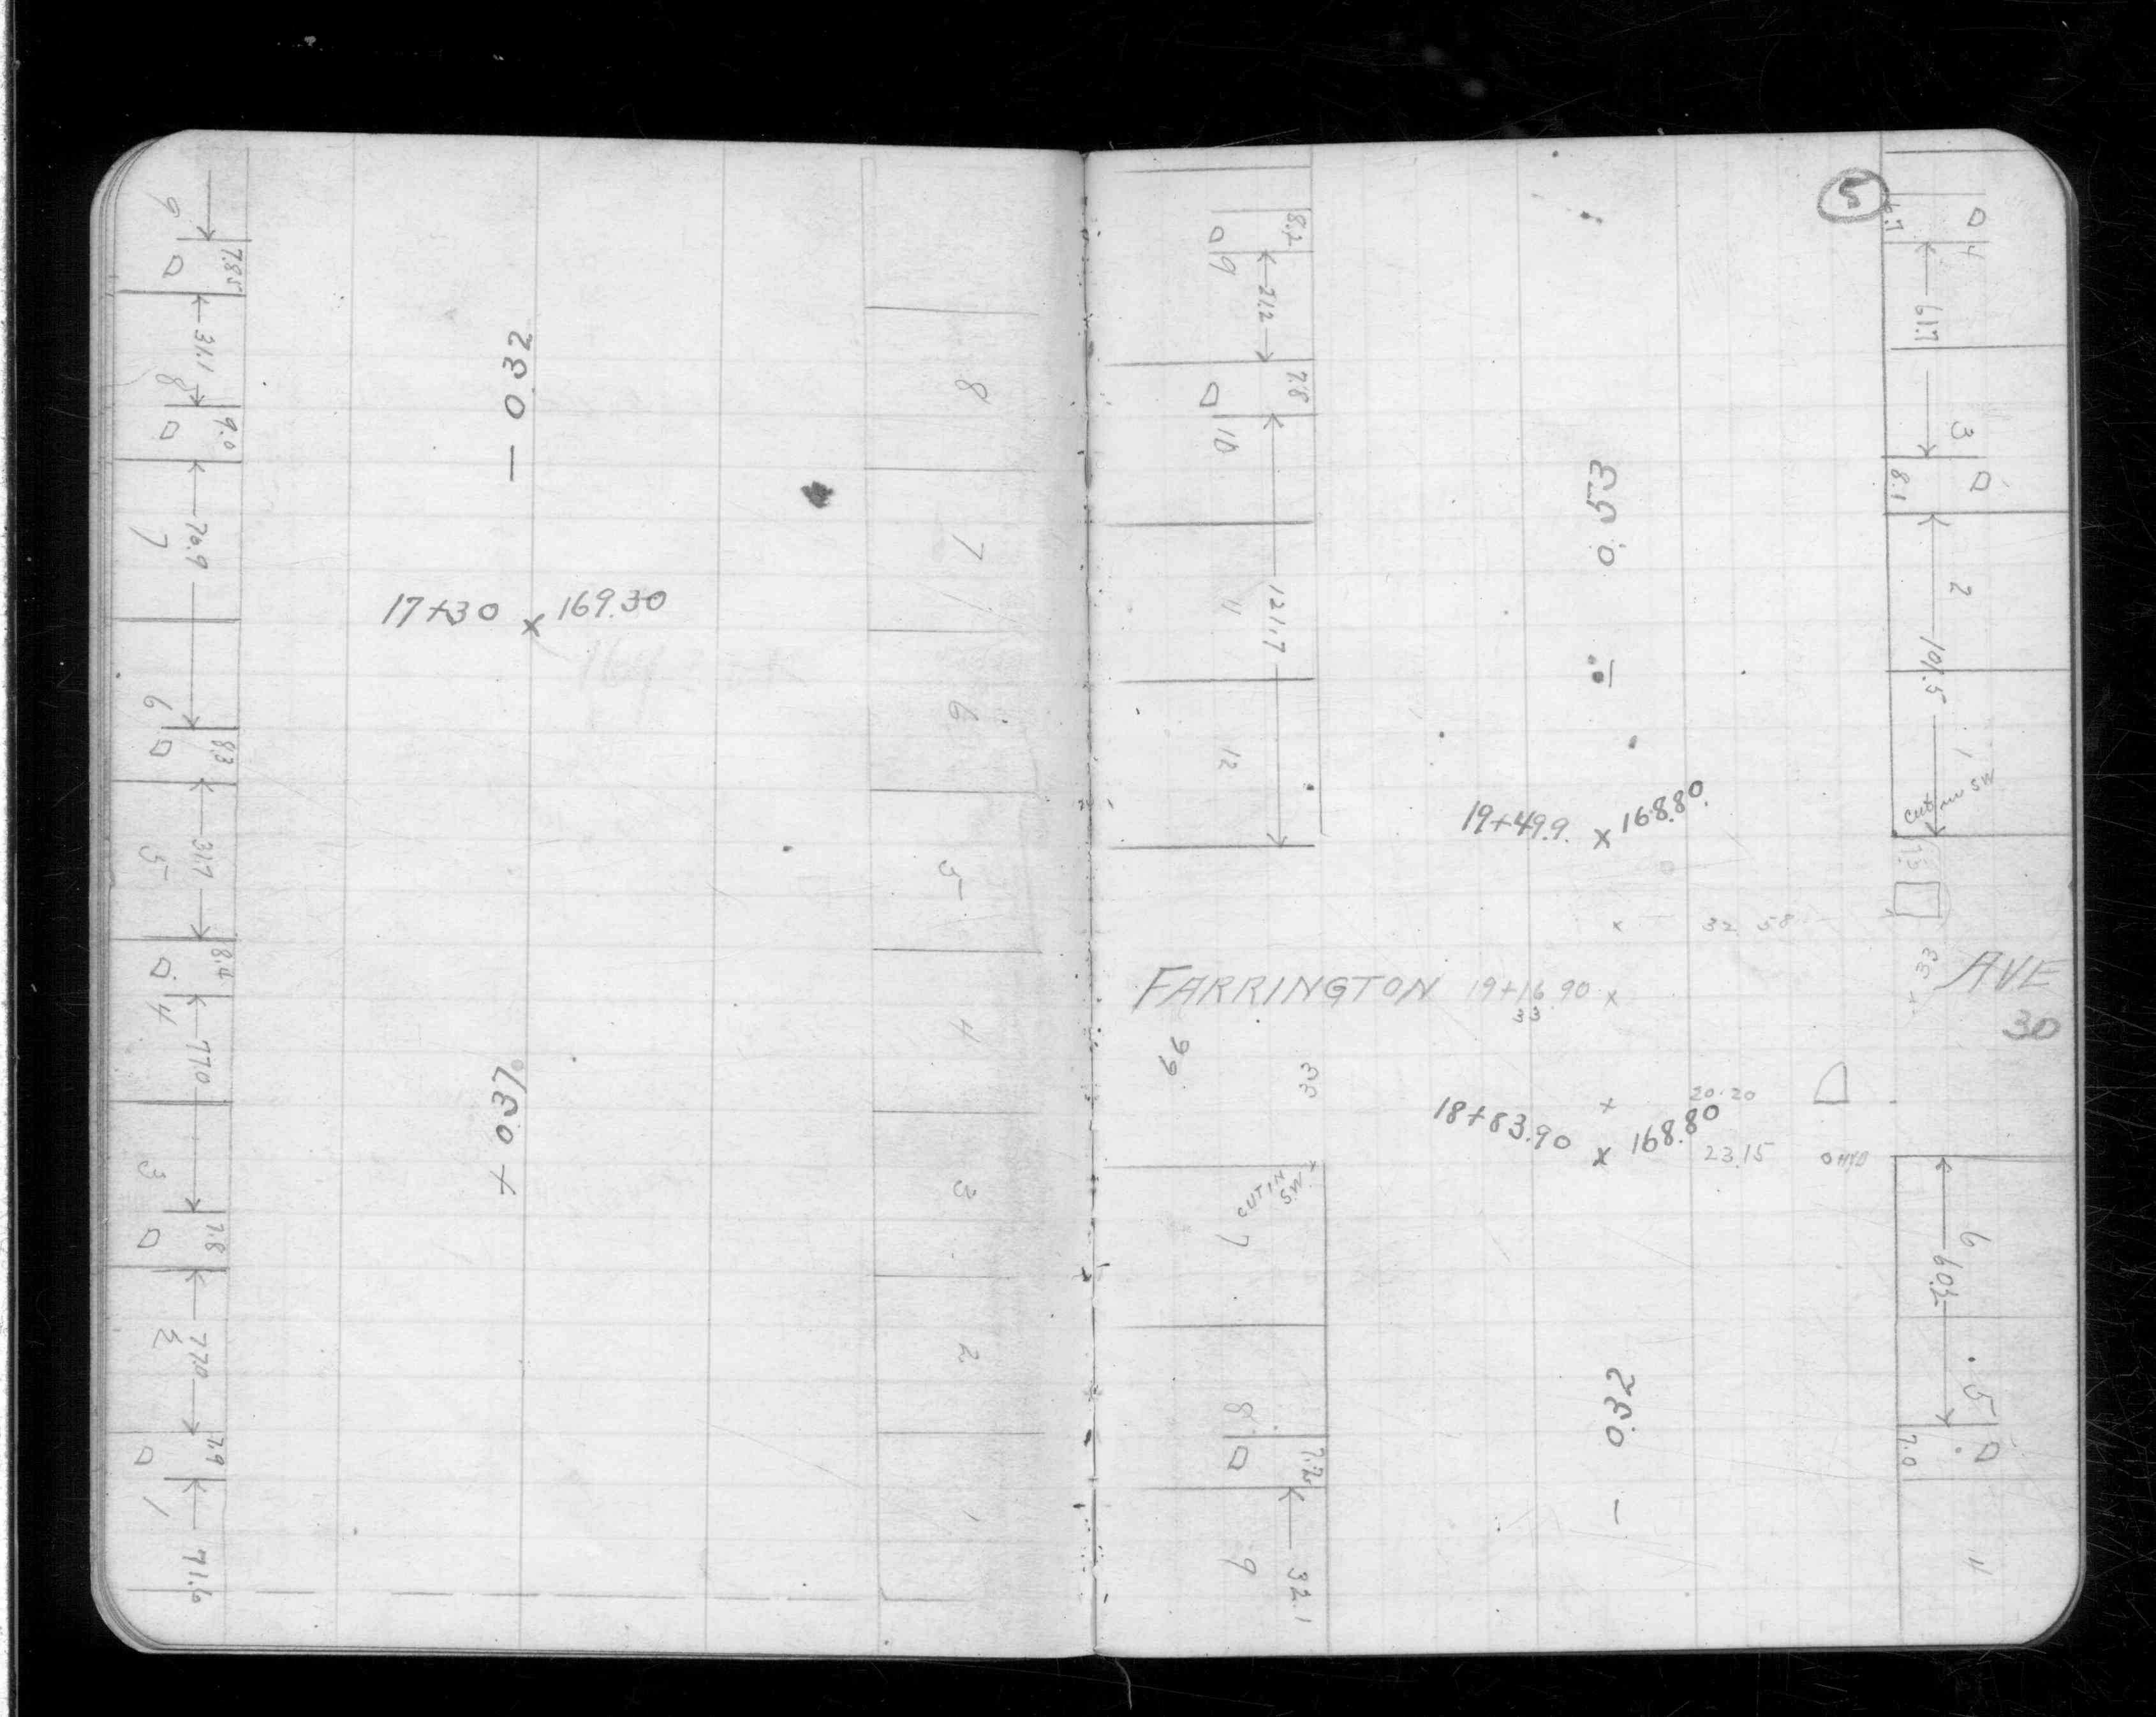 9
7.85
31.1
8
9.0
76.9
7
6
8.3
31.7
5
8.4
4
77.0
3
7.8
77.0
2
7.9
1
71.6
— 0.32
17+30 x 169.30
+ 0.37
8
7
6
5
4
3
2
1
5
8.2
9
31.2
7.8
10
121.7
11
12
0.53
—
19+49.9 x 168.80
x 32 58
FARRINGTON 19+16.90 x AVE
33
30
66
33
33
+ 20.20
18+83.90 x 168.80
23.15 O HYD
CUT IN
S.W.
7
8
7.2
9
32.1
— 0.32
4
61.7
3
8.1
2
101.5
1
CUT
IN SW
6
60.5
5
7.0
11